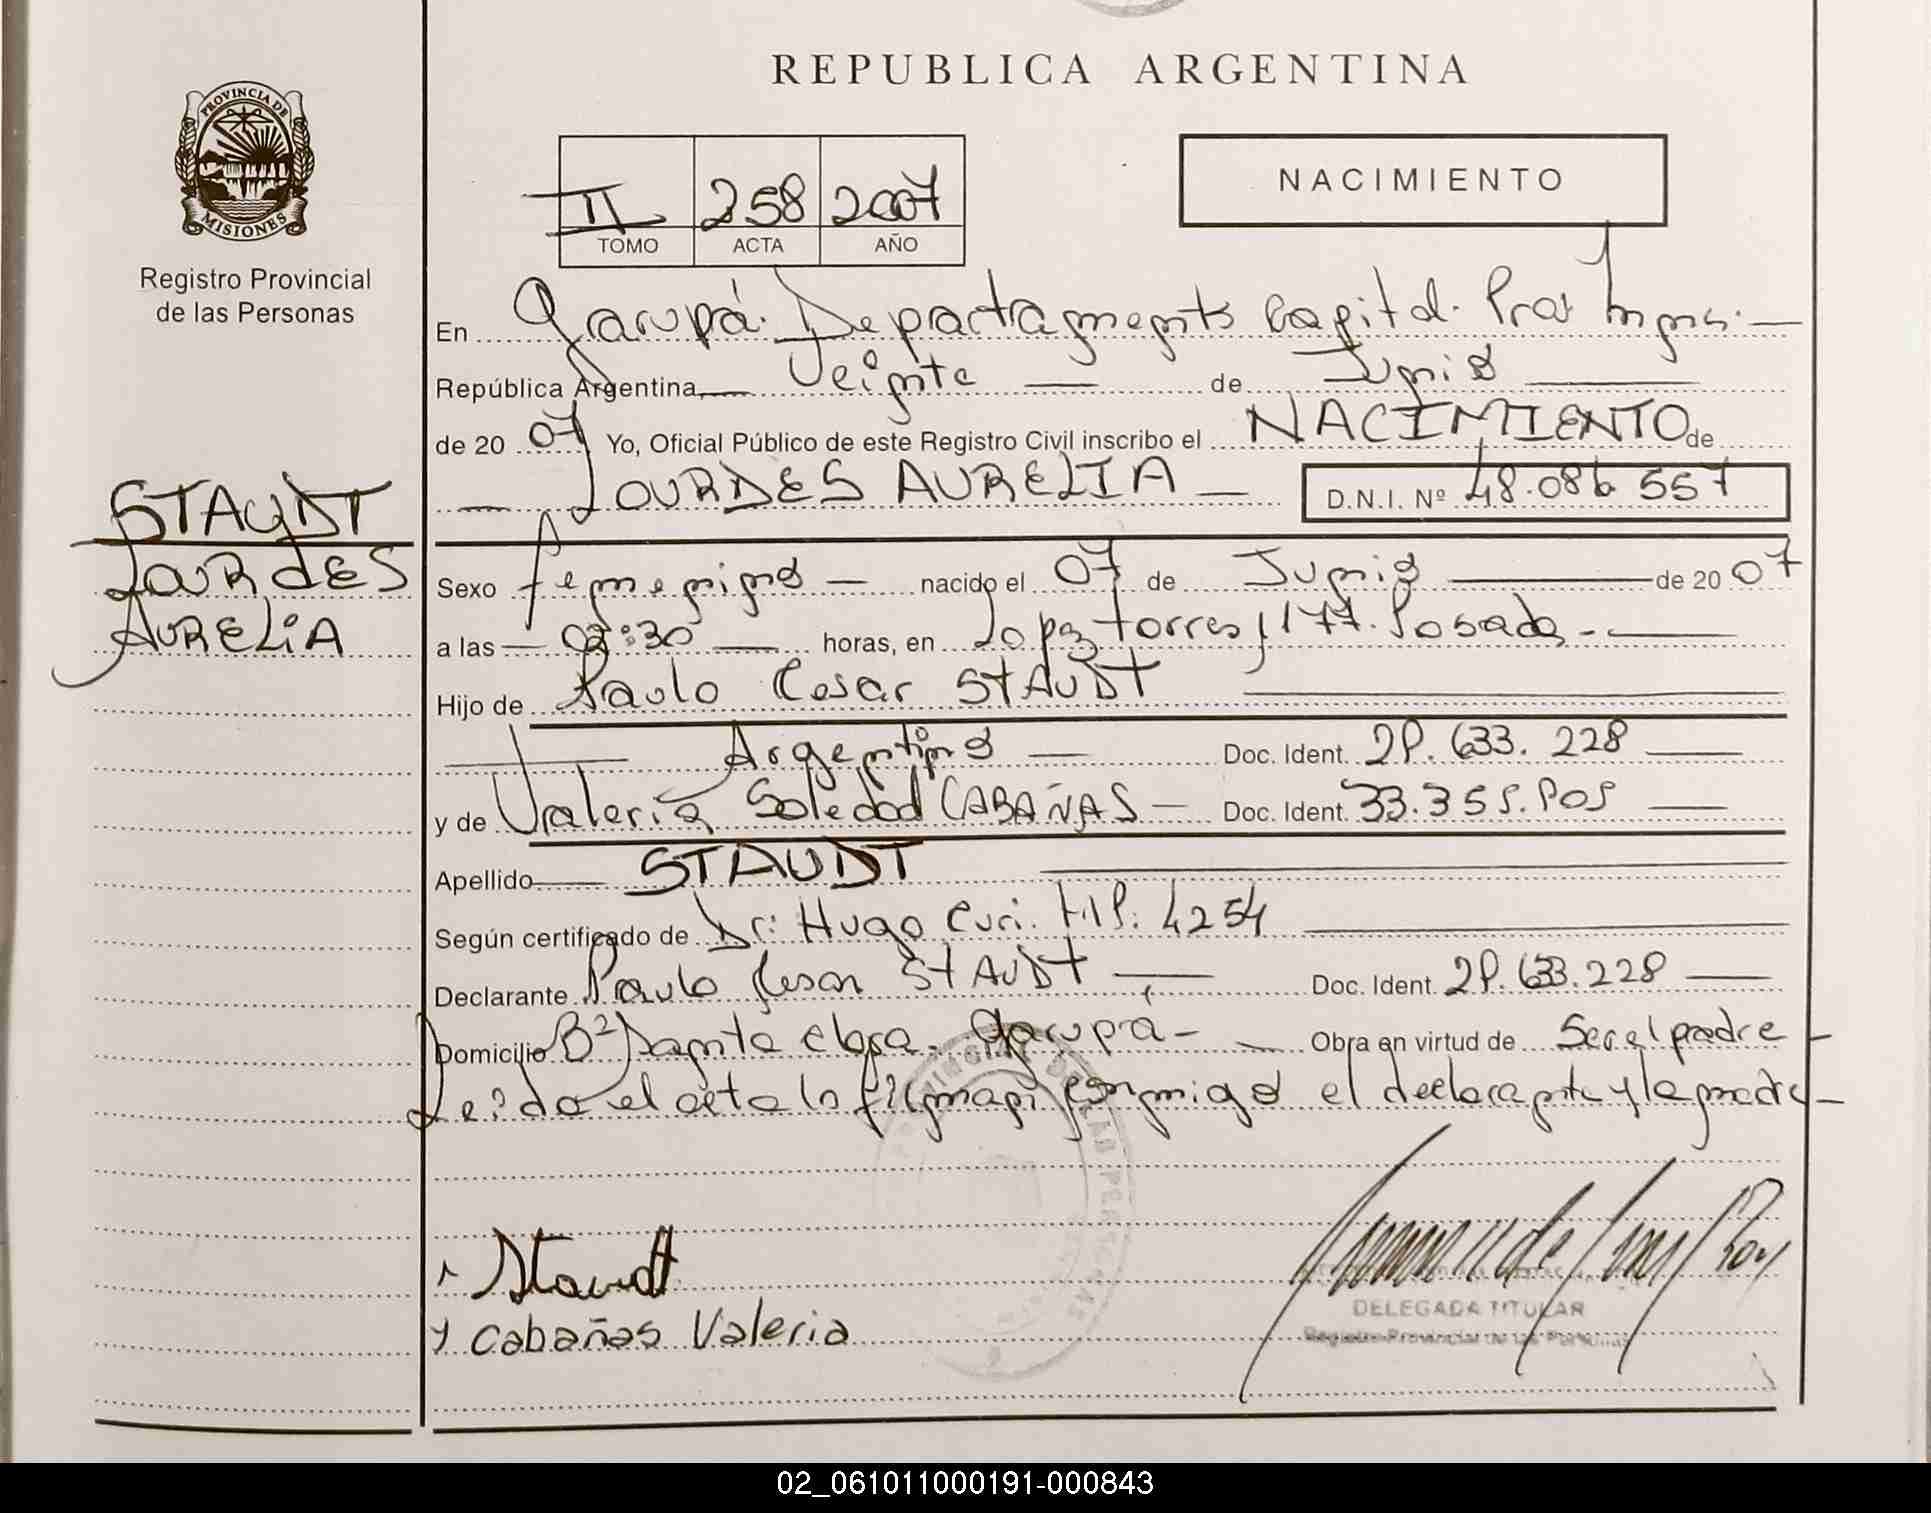 REPUBLICA ARGENTINA
PROVINCIA DE
MISIONES
Registro Provincial
de las Personas
II 258 2007
TOMO ACTA AÑO
NACIMIENTO
En Garupá. Departamento Capital. Pcia. Mnes.
República Argentina, Veinte de Junio
de 20 07 Yo, Oficial Público de este Registro Civil inscribo el NACIMIENTO de
LOURDES AURELIA D.N.I. Nº 48.086 557
STAUDT
LOURdES
AURELiA
Sexo femenino nacido el 07 de Junio de 20 07
a las 02:30 horas, en Lopez torres 1177. Posadas
Hijo de Paulo Cesar STAUDT
Argentino Doc. Ident. 29.633.228
y de Valeria Soledad CABAÑAS Doc. Ident. 33.359.909
Apellido STAUDT
Según certificado de Dr: Hugo Curi. M.P. 4254
Declarante Paulo Cesar STAUDT Doc. Ident. 29.633.228
Domicilio Bº Santa Clara. Garupá Obra en virtud de Ser el padre
Leida el acta la firman conmigo el declarante y la madre
Staudt
y Cabañas Valeria
DELEGADA TITULAR
Registro Provincial de las Personas
02_061011000191-000843